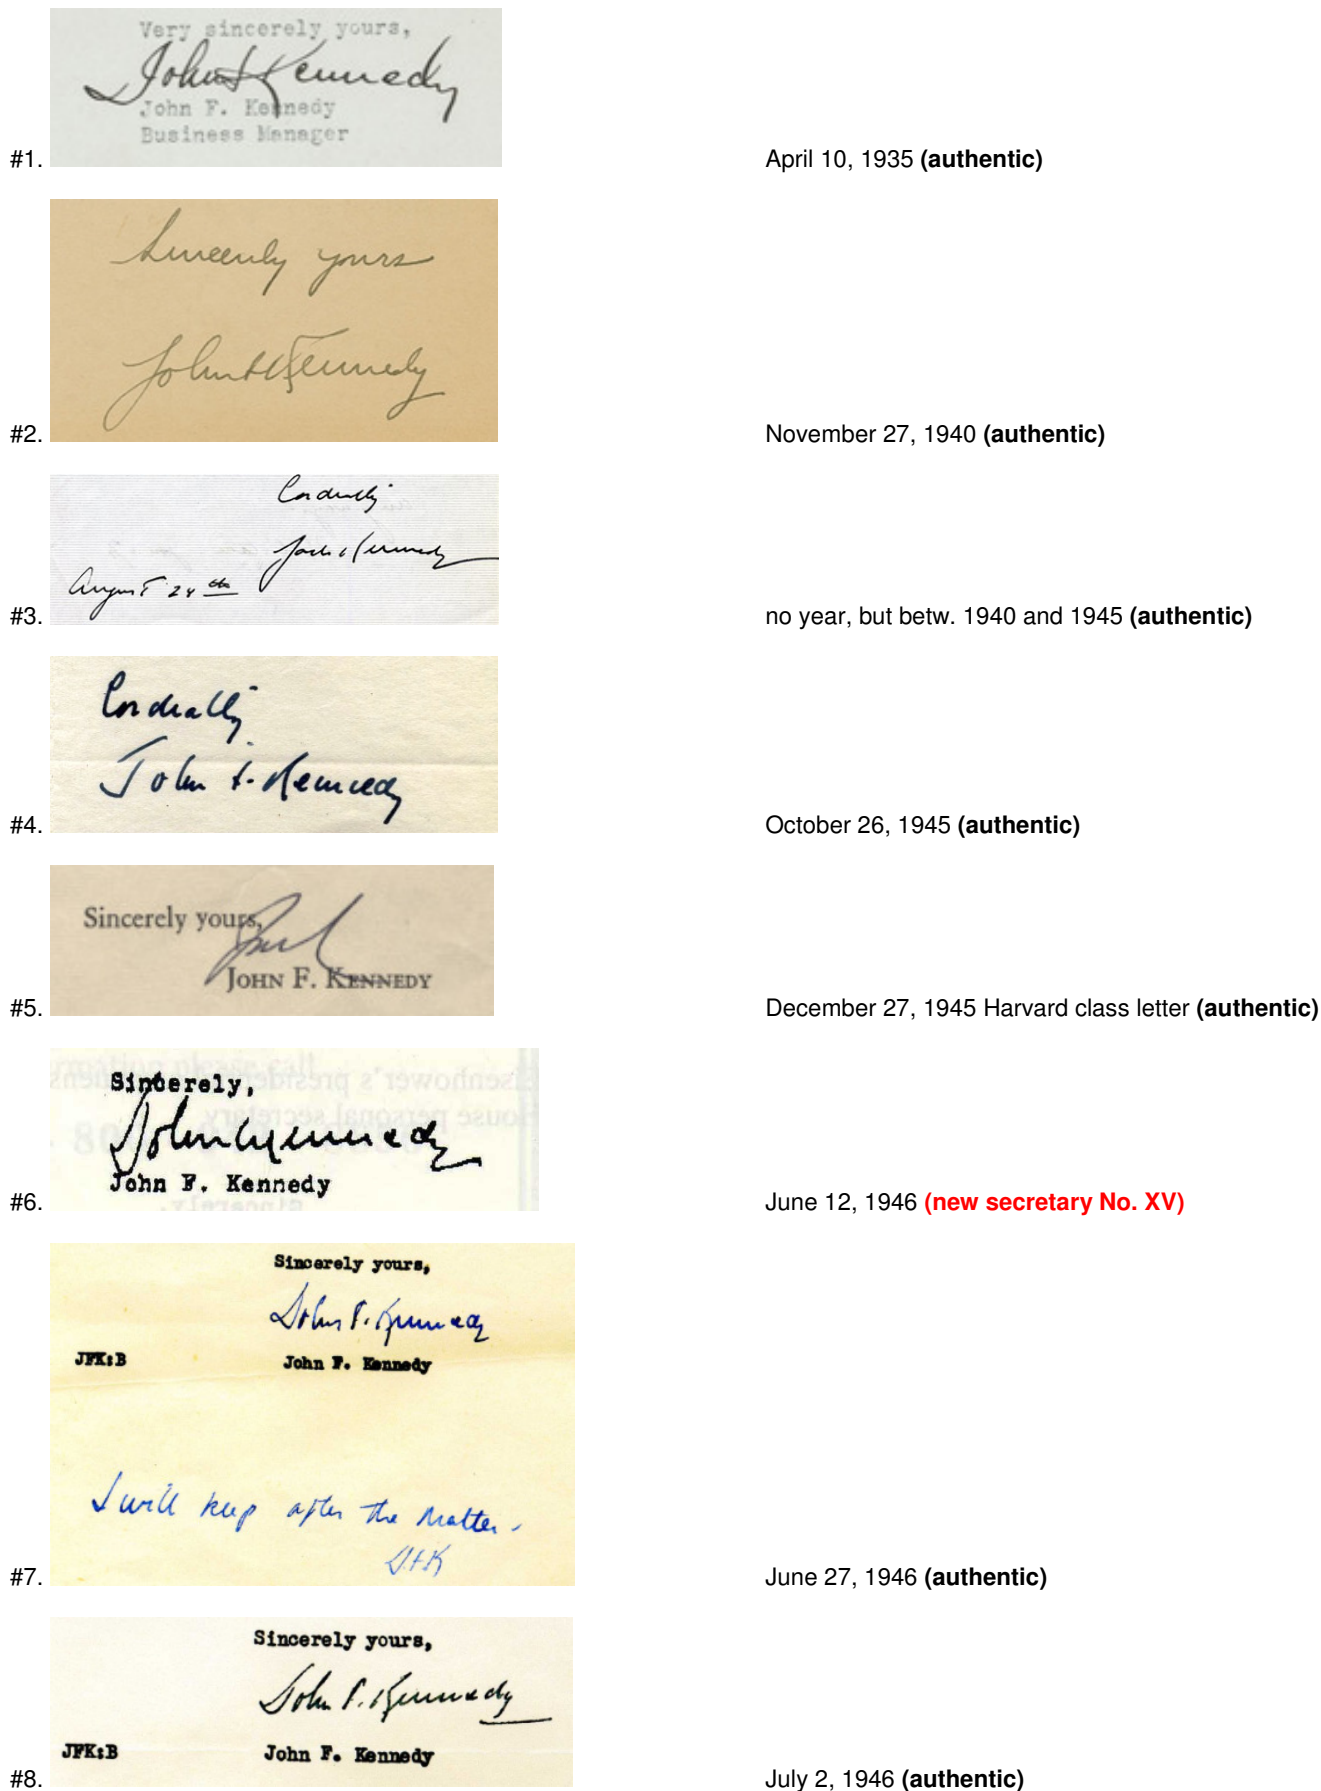 Very sincerely yours,
John F Kennedy
John F. Kennedy
Business Manager
#1. April 10, 1935 (authentic)
Sincerely yours
John F Kennedy
#2. November 27, 1940 (authentic)
Cordially
Jack Kennedy
August 24th
#3. no year, but betw. 1940 and 1945 (authentic)
Cordially
John F. Kennedy
#4. October 26, 1945 (authentic)
Sincerely yours,
Jack
JOHN F. KENNEDY
#5. December 27, 1945 Harvard class letter (authentic)
Sincerely,
John Kennedy
John F. Kennedy
#6. June 12, 1946 (new secretary No. XV)
Sincerely yours,
John F. Kennedy
JFK:B John F. Kennedy
I will keep after the matter.
J.F.K
#7. June 27, 1946 (authentic)
Sincerely yours,
John F. Kennedy
JFK:B John F. Kennedy
#8. July 2, 1946 (authentic)